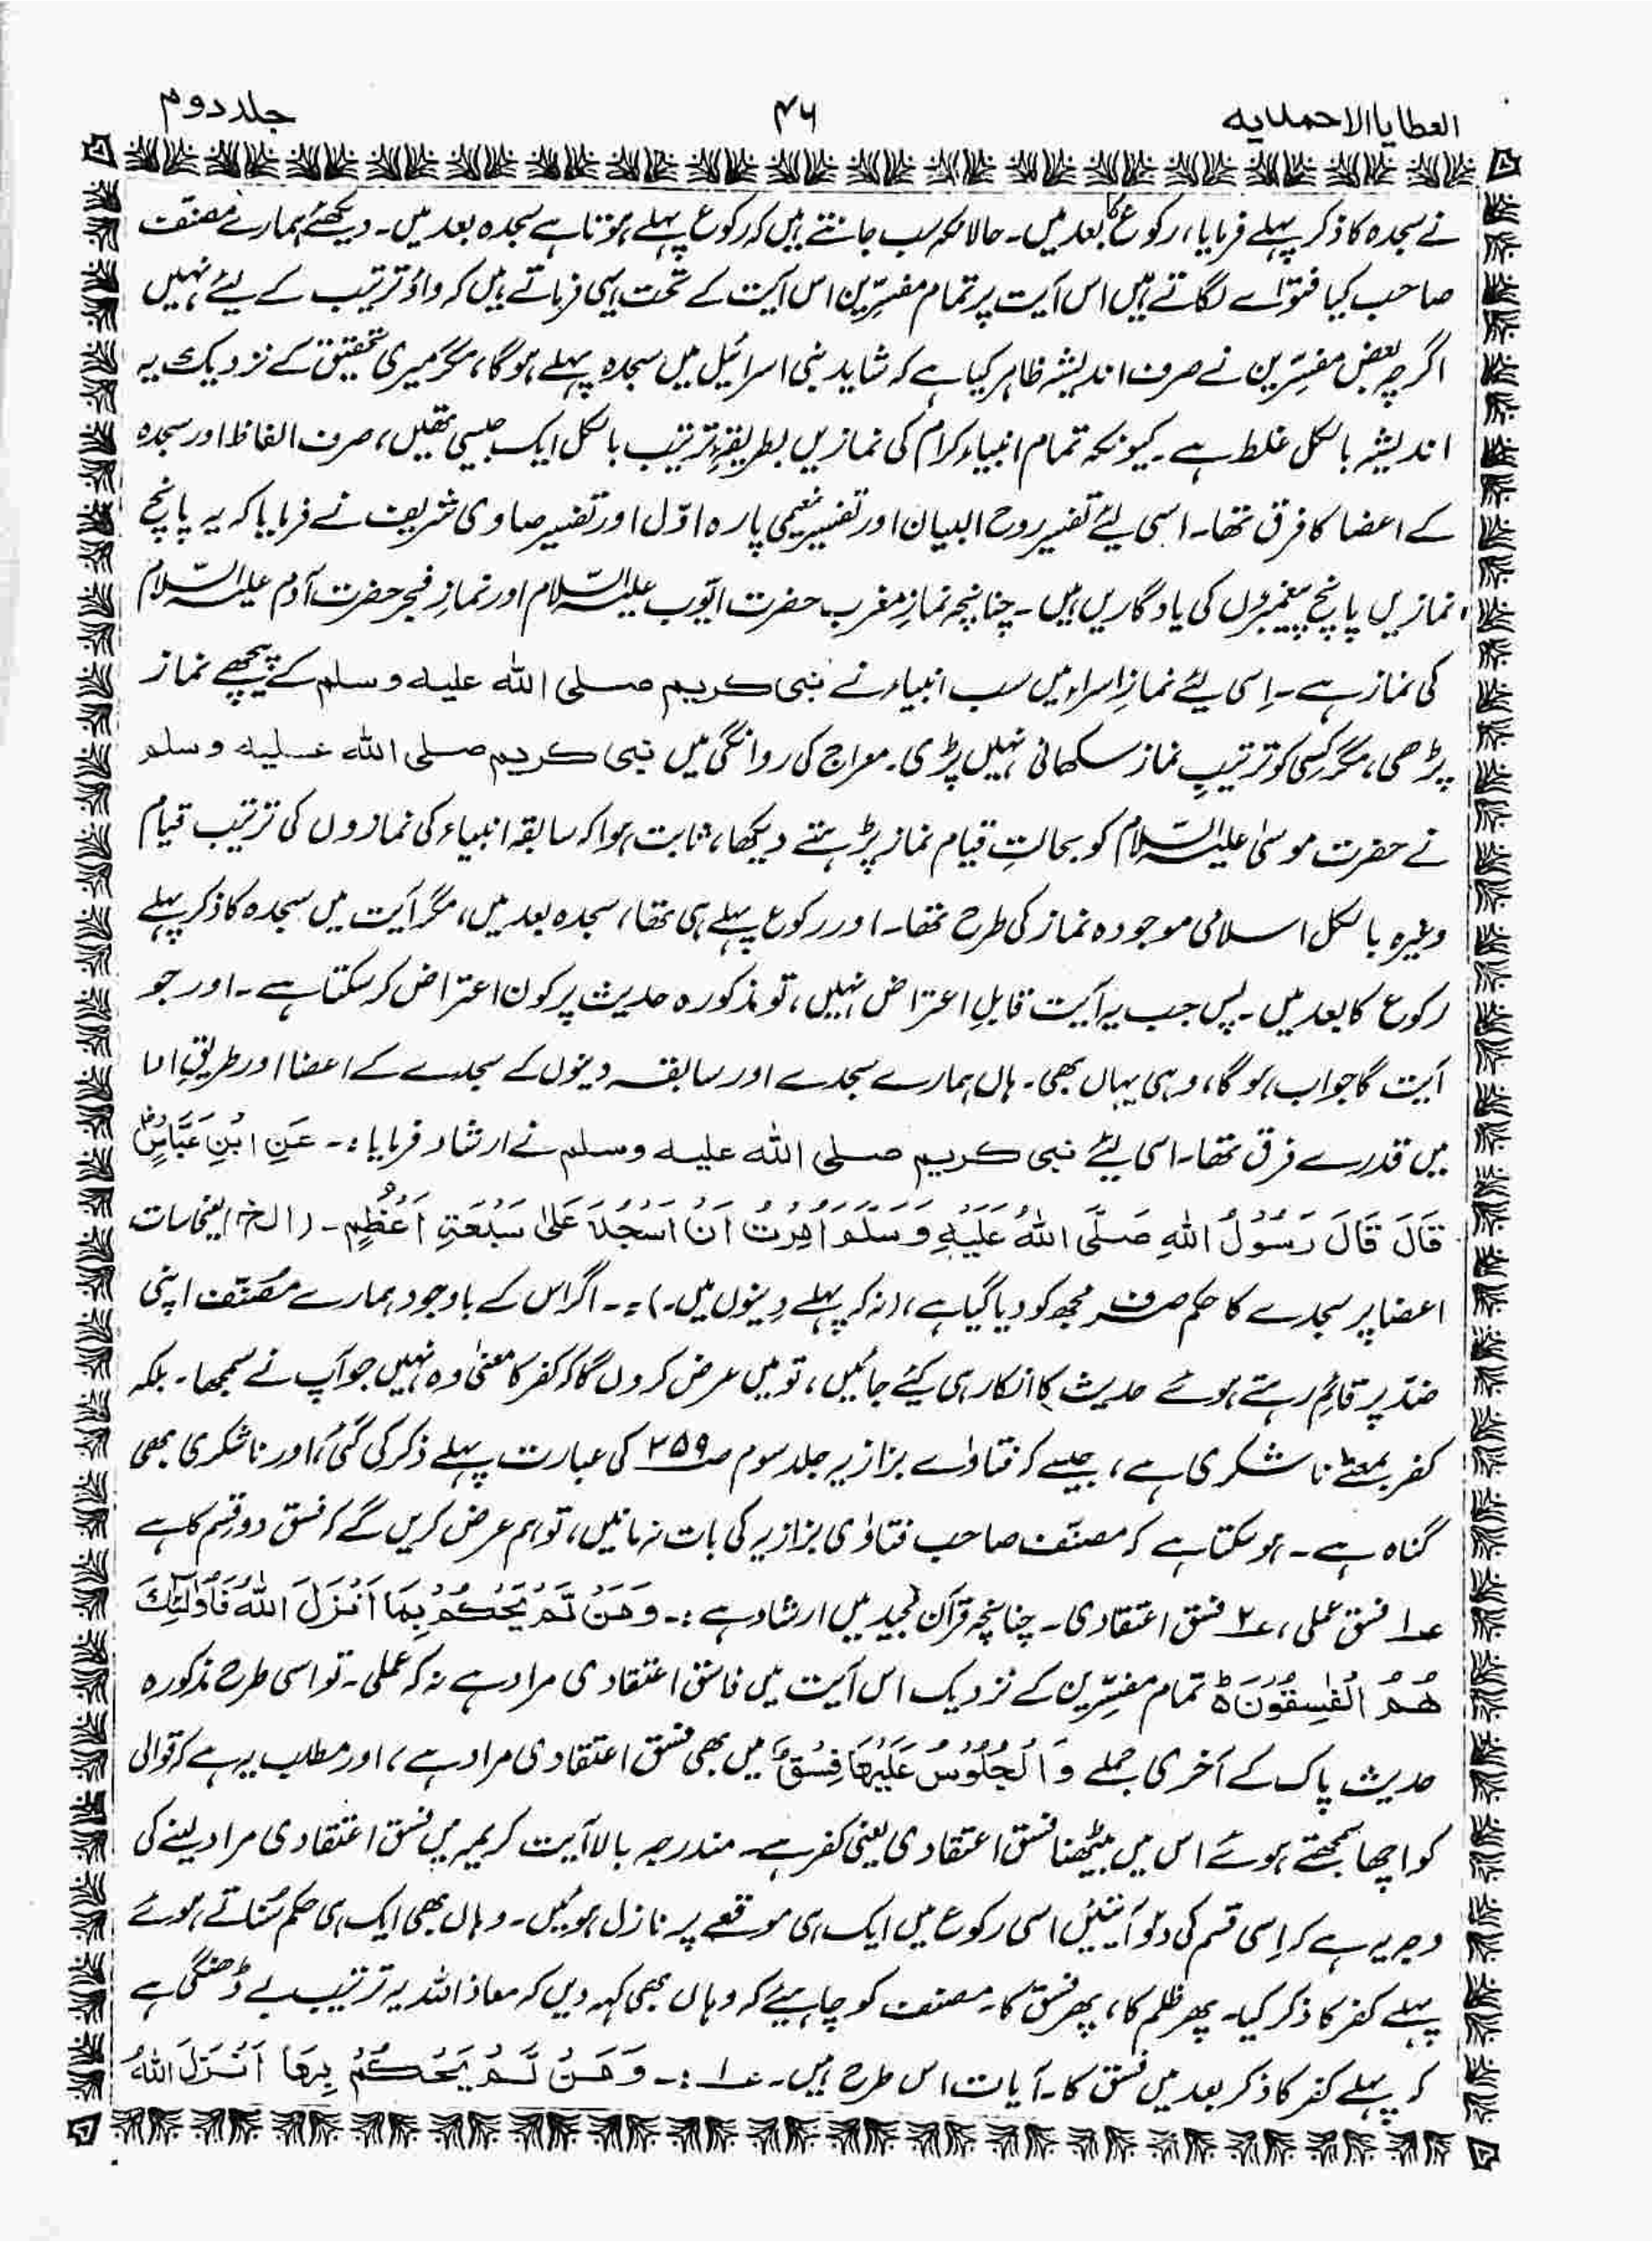 العطایا الاحمدیه ۴۶ جلد دوم
نے سجدہ کا ذکر پہلے فرمایا، رکوع کا بعد میں۔ حالانکہ سب جانتے ہیں کہ رکوع پہلے ہوتا ہے سجدہ بعد میں۔ دیکھئے ہمارے مصنّف
صاحب کیا فتوٰے لگاتے ہیں اس آیت پر تمام مفسّرین اس آیت کے تحت یہی فرماتے ہیں کہ واؤ ترتیب کے لیئے نہیں
اگرچہ بعض مفسّرین نے صرف اندیشہ ظاہر کیا ہے کہ شاید بنی اسرائیل میں سجدہ پہلے ہوگا، مگر میری تحقیق کے نزدیک یہ
اندیشہ بالکل غلط ہے۔ کیونکہ تمام انبیاء کرام کی نمازیں بطریقۂ ترتیب بالکل ایک جیسی تھیں، صرف الفاظ اور سجدہ
کے اعضا کا فرق تھا۔ اسی لیئے تفسیر روح البیان اور تفسیر نعیمی پارہ اوّل اور تفسیر صاوی شریف نے فرمایا کہ یہ پانچ
نمازیں پانچ پیغمبروں کی یادگاریں ہیں۔ چنانچہ نمازِ مغرب حضرت ایّوب علیہ السّلام اور نمازِ فجر حضرت آدم علیہ السّلام
کی نماز ہے۔ اِسی لیئے نمازِ اسراء میں سب انبیاء نے نبی کریم صلی اللہ علیہ وسلم کے پیچھے نماز
پڑھی، مگر کسی کو ترتیبِ نماز سکھانی نہیں پڑی۔ معراج کی روانگی میں نبی کریم صلی اللہ علیہ وسلم
نے حضرت موسیٰ علیہ السّلام کو بحالتِ قیام نماز پڑہتے دیکھا، ثابت ہوا کہ سابقہ انبیاء کی نمازوں کی ترتیب قیام
وغیرہ بالکل اسلامی موجودہ نماز کی طرح تھا۔ اور رکوع پہلے ہی تھا، سجدہ بعد میں، مگر آیت میں سجدہ کا ذکر پہلے
رکوع کا بعد میں۔ پس جب یہ آیت قابلِ اعتراض نہیں، تو مذکورہ حدیث پر کون اعتراض کر سکتا ہے۔ اور جو
آیت کا جواب ہوگا، وہی یہاں بھی۔ ہاں ہمارے سجدے اور سابقہ دینوں کے سجدے کے اعضا اور طریقِ ادا
میں قدرے فرق تھا۔ اسی لئے نبی کریم صلی اللہ علیہ وسلم نے ارشاد فرمایا:۔ عَنِ ابْنِ عَبَّاسٍ
قَالَ قَالَ رَسُوْلُ اللهِ صَلَّی اللهُ عَلَیْهِ وَسَلَّمَ اُمِرْتُ اَنْ اَسْجُدَ عَلیٰ سَبْعَةِ اَعْظُمٍ۔ (الخ) یعنی سات
اعضا پر سجدے کا حکم صرف مجھ کو دیا گیا ہے، (نہ کہ پہلے دینوں میں۔)؛۔ اگر اس کے باوجود ہمارے مصنّف اپنی
ضد پر قائم رہتے ہوئے حدیث کا انکار ہی کیئے جائیں، تو میں عرض کروں گا کہ کفر کا معنیٰ وہ نہیں جو آپ نے سمجھا۔ بلکہ
کفر بمعنٰے ناشکری ہے، جیسے کہ فتاوٰے بزازیہ جلد سوم صـ۲۵۹ کی عبارت پہلے ذکر کی گئی، اور ناشکری بھی
گناہ ہے۔ ہو سکتا ہے کہ مصنّف صاحب فتاوٰی بزازیہ کی بات نہ مانیں، تو ہم عرض کریں گے کہ فسق دو قسم کا ہے
عـ۱ فسق عملی، عـ۲ فسق اعتقادی۔ چنانچہ قرآن مجید میں ارشاد ہے:۔ وَمَنْ لَّمْ یَحْکُمْ بِمَا اَنْزَلَ اللهُ فَاُولٰئِكَ
هُمُ الْفٰسِقُوْنَ ہ تمام مفسّرین کے نزدیک اس آیت میں فاسق اعتقادی مراد ہے نہ کہ عملی۔ تو اسی طرح مذکورہ
حدیث پاک کے آخری جملے وَالْجُلُوْسُ عَلَیْهَا فِسْقٌ میں بھی فسق اعتقادی مراد ہے، اور مطلب یہ ہے کہ قوالی
کو اچھا سمجھتے ہوئے اس میں بیٹھنا فسق اعتقادی یعنی کفر ہے۔ مندرجہ بالا آیت کریمہ میں فسق اعتقادی مراد لینے کی
وجہ یہ ہے کہ اِسی قسم کی دلو آیتیں اسی رکوع میں ایک ہی موقعے پر نازل ہوئیں۔ وہاں بھی ایک ہی حکم سُناتے ہوئے
پہلے کفر کا ذکر کیا۔ پھر ظلم کا، پھر فسق کا۔ مصنف کو چاہیئے کہ وہاں بھی کہہ دیں کہ معاذ اللہ یہ ترتیب بے ڈھنگی ہے
کہ پہلے کفر کا ذکر بعد میں فسق کا۔ آیات اس طرح ہیں۔ عـ۱ :۔ وَمَنْ لَّمْ یَحْکُمْ بِمَا اَنْزَلَ اللهُ